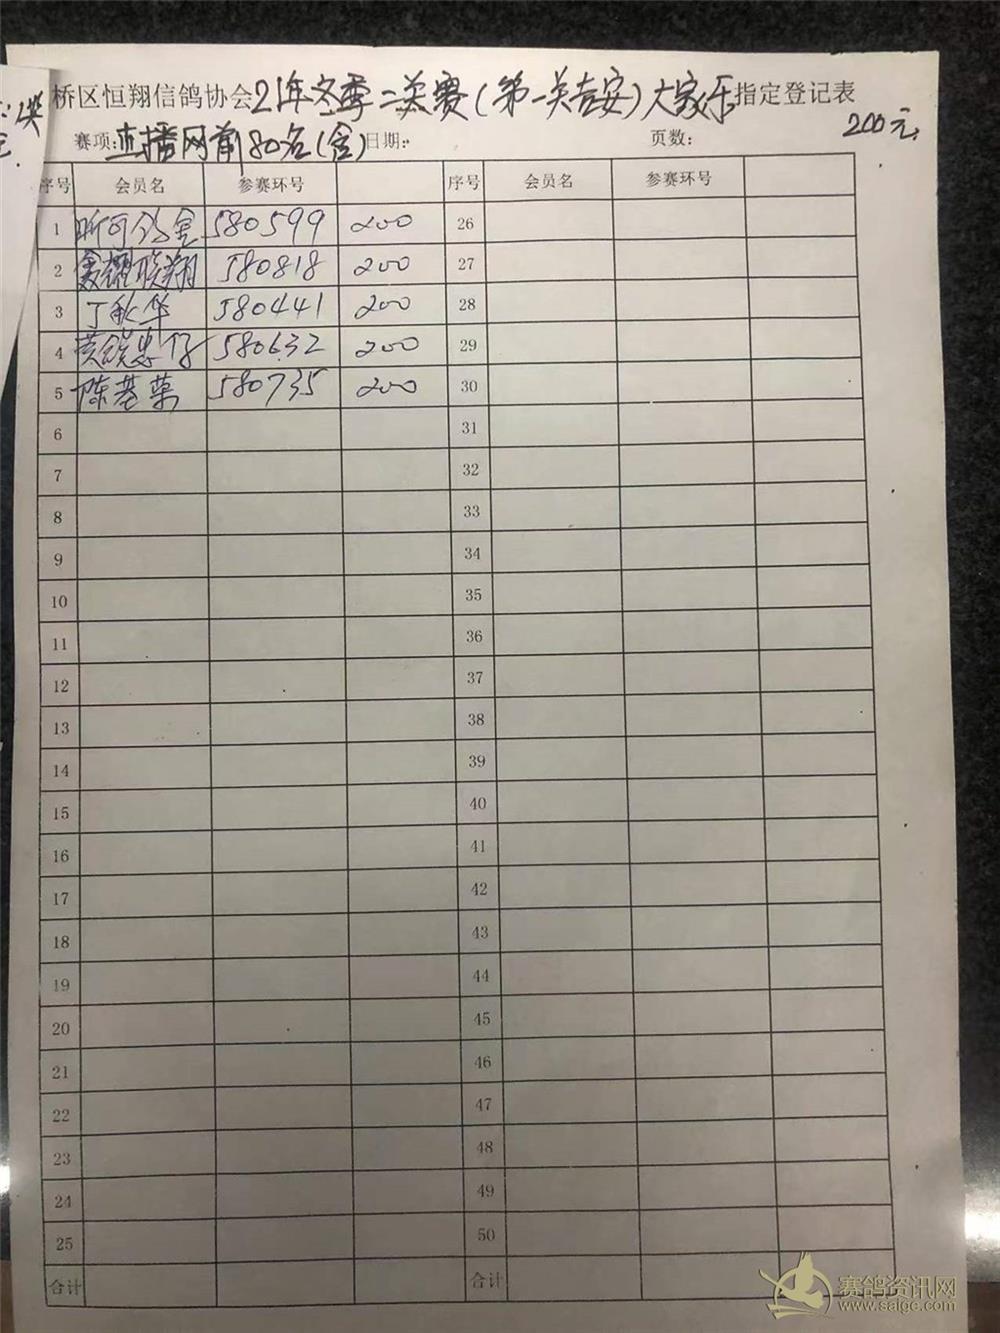 桥区恒翔信鸽协会21年冬季二关赛(第一关吉安)大家乐指定登记表
200元
赛项:直播网前80名(含)日期: 页数:
序号 会员名 参赛环号 序号 会员名 参赛环号
1 昕可鸽舍 580599 200 26
2 鑫耀腾翔 580818 200 27
3 丁秋华 580441 200 28
4 580632 200 29
5 陈基荣 580735 200 30
6 31
7 32
8 33
9 34
10 35
11 36
12 37
13 38
14 39
15 40
16 41
17 42
18 43
19 44
20 45
21 46
22 47
23 48
24 49
25 50
合计 合计
赛鸽资讯网
www.saigc.com